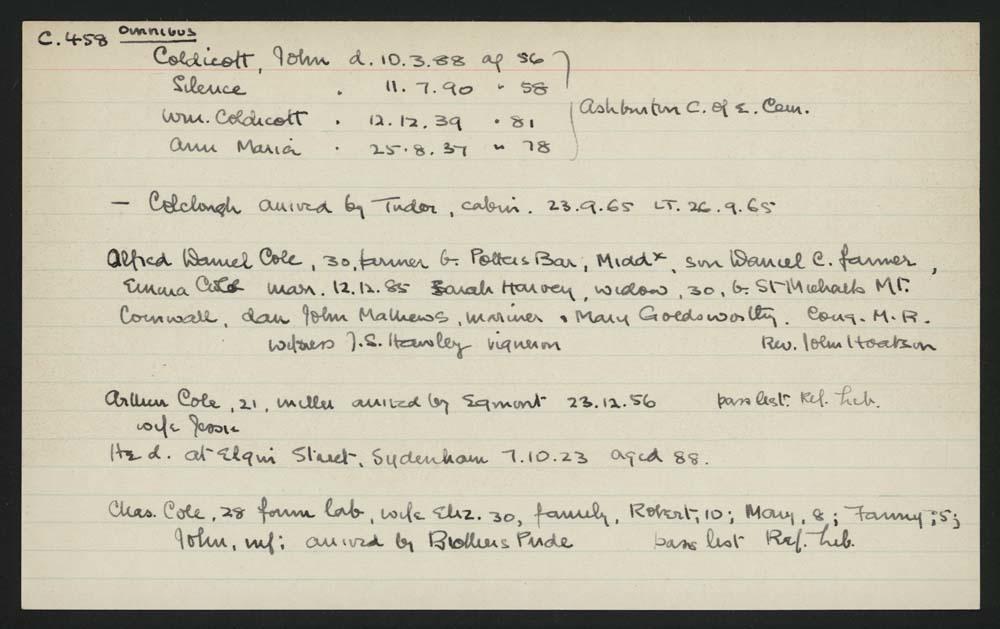 C.458 OMNIBUS
Coldicott, John d. 10.3.88 ag 56
Silence . 11.7.90 " 58
Wm. Coldicott . 12.12.39 " 81
Ann Maria . 25.8.37 " 78
Ashburton C. of E. Cem.
— Colclough arrived by Tudor, cabin. 23.9.65 LT. 26.9.65
Alfred Daniel Cole, 30, farmer b. Potters Bar, Middx, son Daniel C. farmer,
Emma Cole marr. 12.12.85 Sarah Harvey, widow, 30, b. St Michaels Mt.
Cornwall, dau John Mathews, mariner & Mary Goldsworthy. Cong. M.R.
witness J.S. Hawley vigneron Rev. John Hoatson
Arthur Cole, 21, miller arrived by Egmont 23.12.56 pass list. Ref. Lib.
wife Jessie
He d. at Elgin Street, Sydenham 7.10.23 aged 88.
Chas. Cole, 28 farm lab, wife Eliz. 30, family, Robert, 10; Mary, 8; Fanny; 5;
John, inf; arrived by Brothers Pride pass list Ref. Lib.